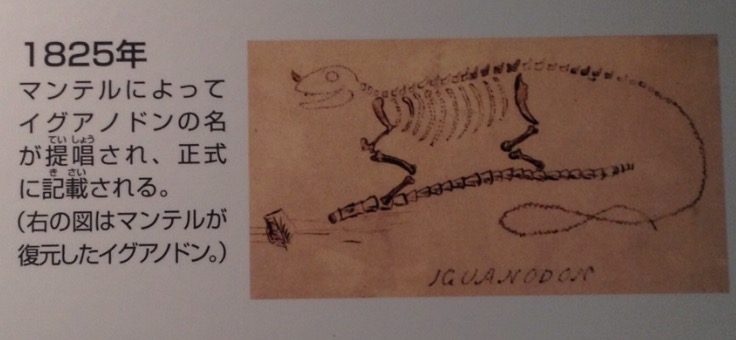 1825年
マンテルによって
イグアノドンの名
が提唱され、正式
に記載される。
(右の図はマンテルが
復元したイグアノドン。)
IGUANODON